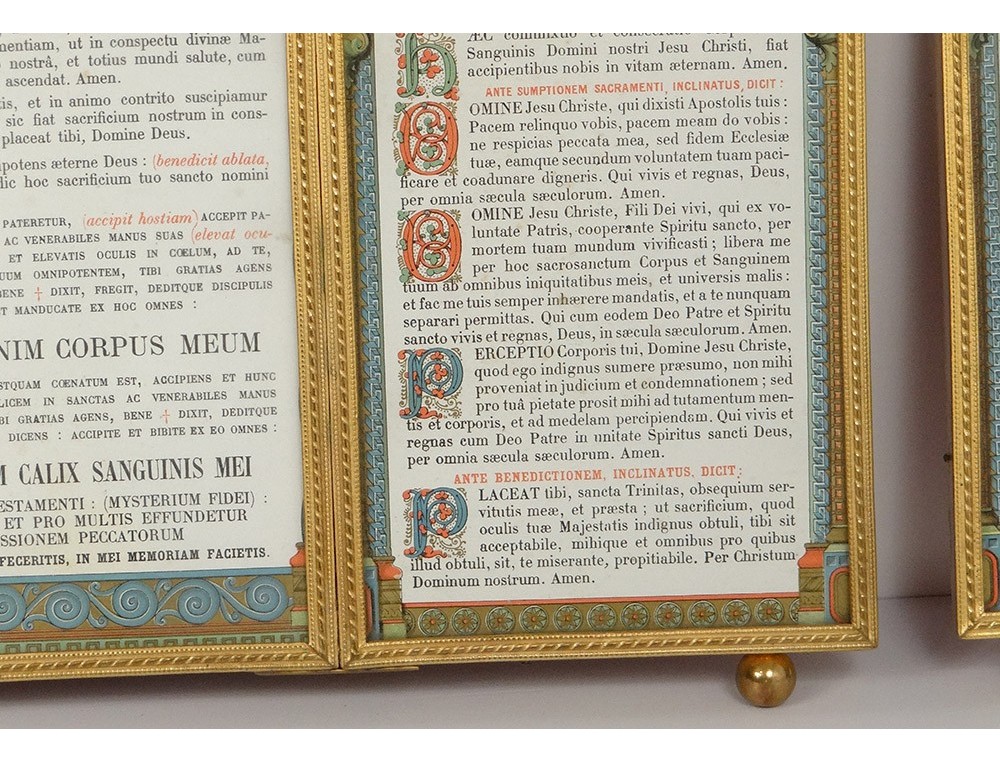 mentiam, ut in conspectu divinæ Ma-
nostrâ, et totius mundi salute, cum
ascendat. Amen.
tis, et in animo contrito suscipiamur
sic fiat sacrificium nostrum in cons-
placeat tibi, Domine Deus.
ipotens æterne Deus : (benedicit ablata,
dic hoc sacrificium tuo sancto nomini
PATERETUR, (accipit hostiam) ACCEPIT PA-
AC VENERABILES MANUS SUAS (elevat ocu-
ET ELEVATIS OCULIS IN CŒLUM, AD TE,
UUM OMNIPOTENTEM, TIBI GRATIAS AGENS
BENE † DIXIT, FREGIT, DEDITQUE DISCIPULIS
T MANDUCATE EX HOC OMNES :
NIM CORPUS MEUM
STQUAM CŒNATUM EST, ACCIPIENS ET HUNC
LICEM IN SANCTAS AC VENERABILES MANUS
BI GRATIAS AGENS, BENE † DIXIT, DEDITQUE
DICENS : ACCIPITE ET BIBITE EX EO OMNES :
M CALIX SANGUINIS MEI
ESTAMENTI : (MYSTERIUM FIDEI) :
ET PRO MULTIS EFFUNDETUR
SSIONEM PECCATORUM
FECERITIS, IN MEI MEMORIAM FACIETIS.
HÆC commixtio et consecratio
Sanguinis Domini nostri Jesu Christi, fiat
accipientibus nobis in vitam æternam. Amen.
ANTE SUMPTIONEM SACRAMENTI, INCLINATUS, DICIT :
DOMINE Jesu Christe, qui dixisti Apostolis tuis :
Pacem relinquo vobis, pacem meam do vobis :
ne respicias peccata mea, sed fidem Ecclesiæ
tuæ, eamque secundum voluntatem tuam paci-
ficare et coadunare digneris. Qui vivis et regnas, Deus,
per omnia sæcula sæculorum. Amen.
DOMINE Jesu Christe, Fili Dei vivi, qui ex vo-
luntate Patris, cooperante Spiritu sancto, per
mortem tuam mundum vivificasti ; libera me
per hoc sacrosanctum Corpus et Sanguinem
tuum ab omnibus iniquitatibus meis, et universis malis :
et fac me tuis semper inhærere mandatis, et a te nunquam
separari permittas. Qui cum eodem Deo Patre et Spiritu
sancto vivis et regnas, Deus, in sæcula sæculorum. Amen.
PERCEPTIO Corporis tui, Domine Jesu Christe,
quod ego indignus sumere præsumo, non mihi
proveniat in judicium et condemnationem ; sed
pro tuâ pietate prosit mihi ad tutamentum men-
tis et corporis, et ad medelam percipiendam. Qui vivis et
regnas cum Deo Patre in unitate Spiritus sancti Deus,
per omnia sæcula sæculorum. Amen.
ANTE BENEDICTIONEM, INCLINATUS, DICIT :
PLACEAT tibi, sancta Trinitas, obsequium ser-
vitutis meæ, et præsta ; ut sacrificium, quod
oculis tuæ Majestatis indignus obtuli, tibi sit
acceptabile, mihique et omnibus pro quibus
illud obtuli, sit, te miserante, propitiabile. Per Christum
Dominum nostrum. Amen.